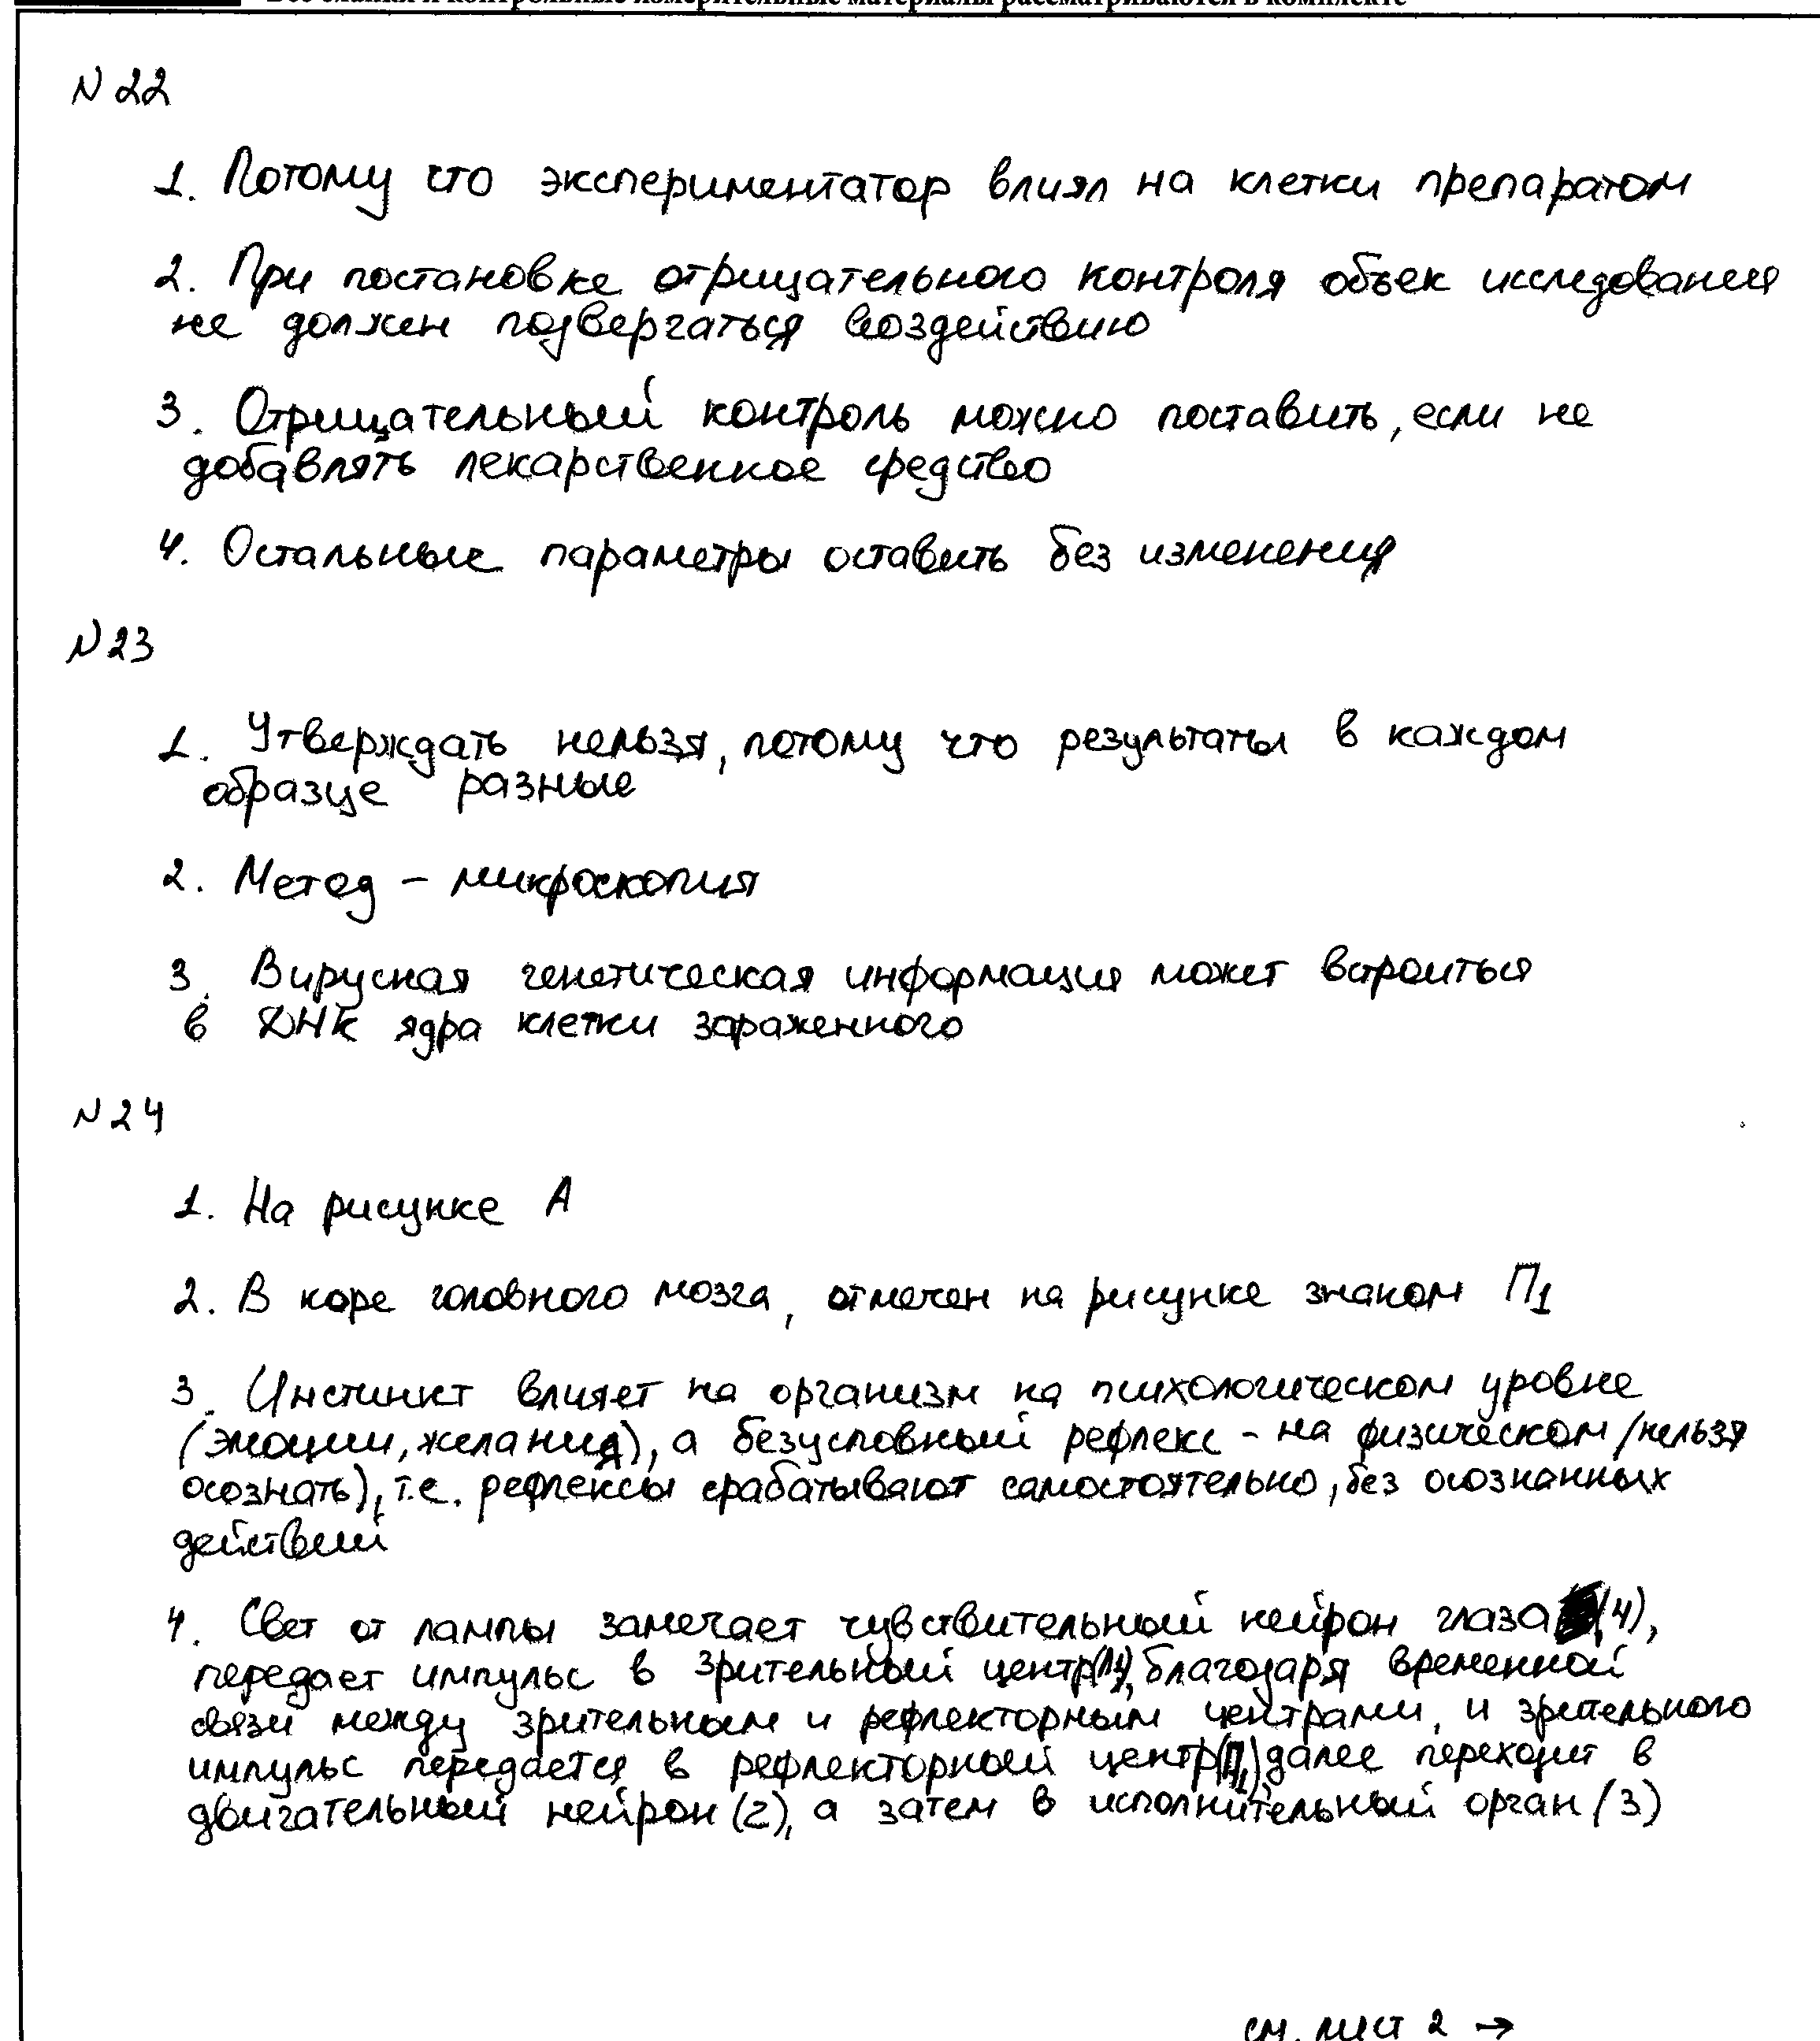 Все бланки и контрольные измерительные материалы рассматриваются в комплекте
N 22
1. Потому что экспериментатор влиял на клетки препаратом
2. При постановке отрицательного контроля объек исследования
не должен подвергаться воздействию
3. Отрицательный контроль можно поставить, если не
добавлять лекарственное средство
4. Остальные параметры оставить без изменения
N 23
1. Утверждать нельзя, потому что результаты в каждом
образце разные
2. Метод – микроскопия
3. Вирусная генетическая информация может встроиться
в ДНК ядра клетки зараженного
N 24
1. На рисунке А
2. В коре головного мозга, отмечен на рисунке знаком П1
3. Инстинкт влияет на организм на психологическом уровне
(эмоции, желания), а безусловный рефлекс - на физическом (нельзя
осознать), т.е. рефлексы срабатывают самостоятельно, без осознанных
действий
4. Свет от лампы замечает чувствительный нейрон глаза (4),
передает импульс в зрительный центр, благодаря временной
связи между зрительным и рефлекторным центрами, и зрительного
импульс передается в рефлекторный центр, далее переходит в
двигательный нейрон (2), а затем в исполнительный орган (3)
см. лист 2 →